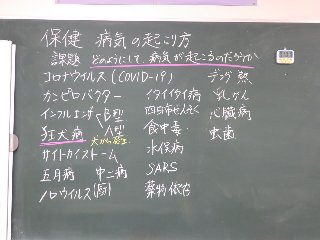 保健 病気の起こり方
課題 どのようにして病気が起こるのだろうか
コロナウイルス(COVID-19)
カンピロバクター
インフルエンザ B型
A型
狂犬病
サイトカインストーム
五月病 中二病
ノロウイルス
イタイイタイ病
四日市ぜんそく
食中毒
水俣病
SARS
薬物依存
デング熱
乳がん
心臓病
虫歯